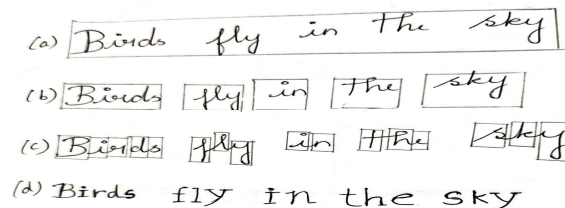 (a) Birds fly in the sky
(b) Birds fly in the sky
(c) Birds fly in the sky
(d) Birds fly in the sky